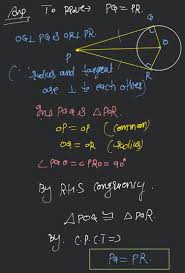 To prove → PQ = PR
OQ ⊥ PQ & OR ⊥ PR
(∵ radius and tangent
are ⊥ to each other)
In △ POQ & △ POR
OP = OP (common)
OQ = OR (radius)
∠PQO = ∠PRO = 90°
By RHS congruency
△ POQ ≅ △ POR
By C.P.C.T ⇒
PQ = PR.
Q
P
O
R